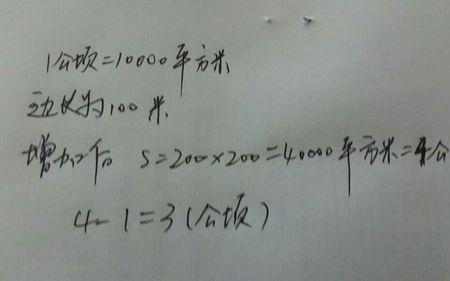 1公顷=10000平方米
边长为100米
增加后 S=200×200=40000平方米=4公
4-1=3(公顷)